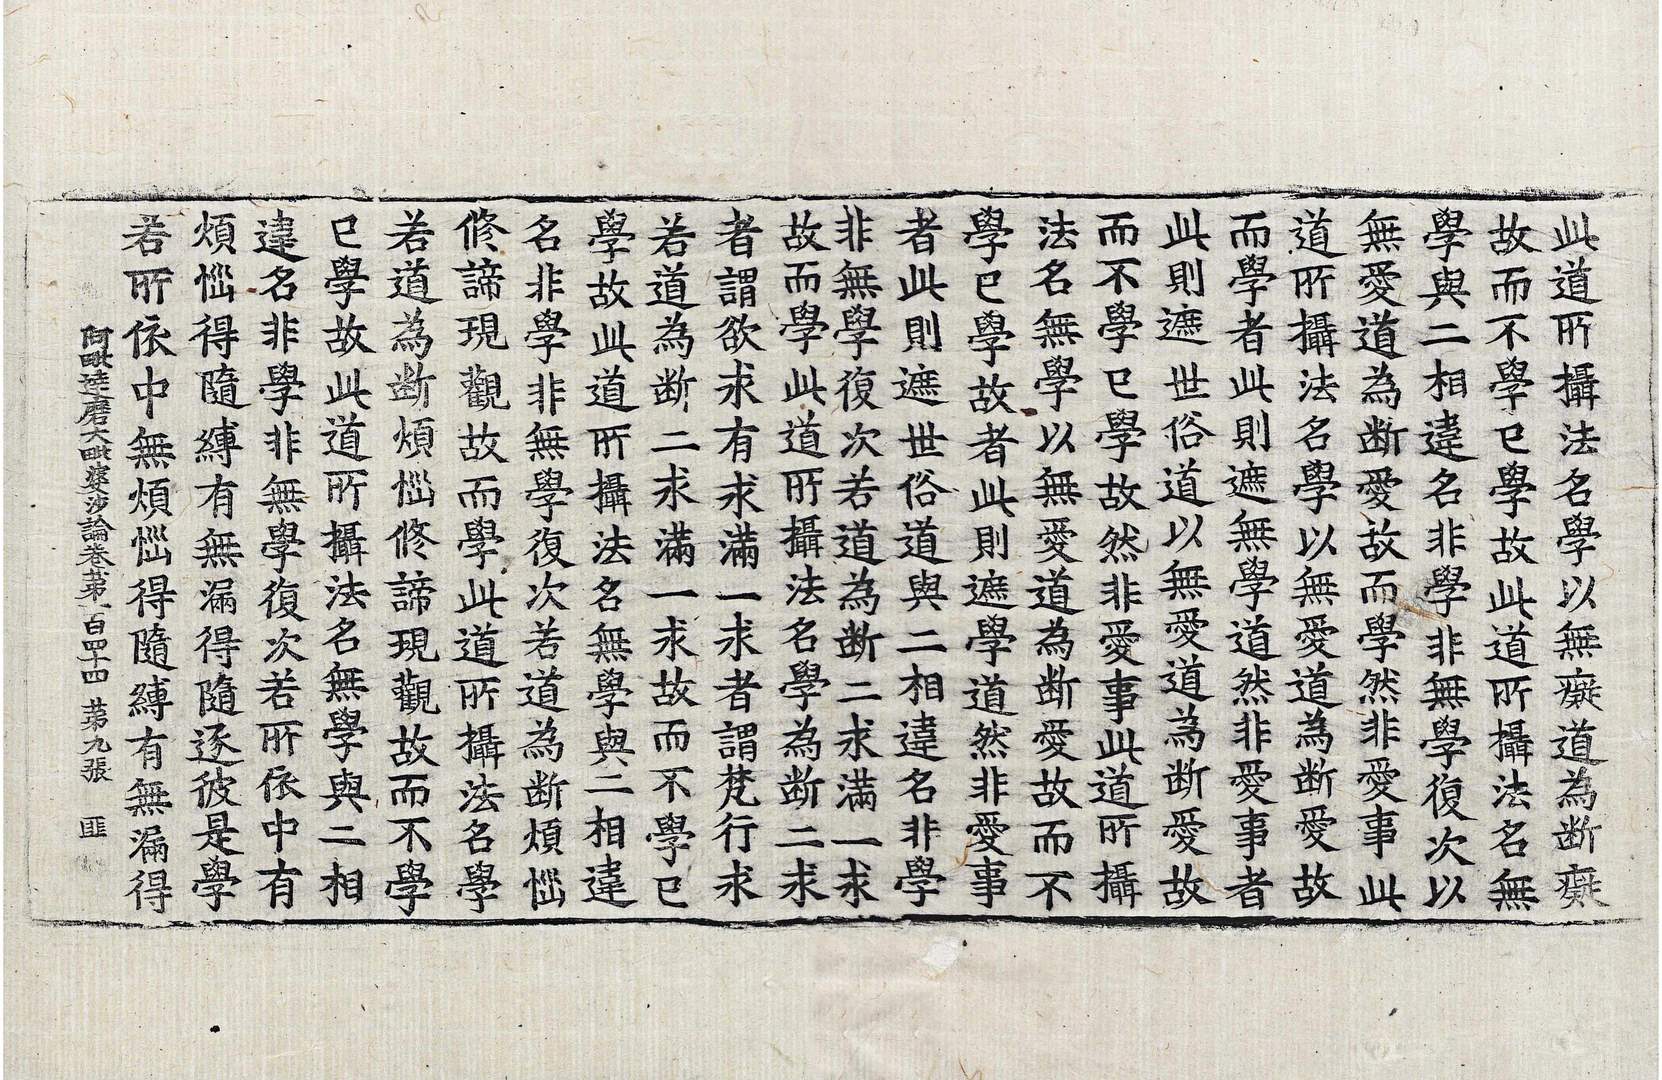 此道所攝法名學以無癡道為断癡
故而不學已學故此道所攝法名無
學與二相違名非學非無學復次以
無愛道為断愛故而學然非愛事此
道所攝法名學以無愛道為断愛故
而學者此則遮無學道然非愛事者
此則遮世俗道以無愛道為断愛故
而不學已學故然非愛事此道所攝
法名無學以無愛道為断愛故而不
學已學故者此則遮學道然非愛事
者此則遮世俗道與二相違名非學
非無學復次若道為断二求满一求
故而學此道所攝法名學為断二求
者謂欲求有求满一求者謂梵行求
若道為断二求满一求故而不學已
學故此道所攝法名無學與二相違
名非學非無學復次若道為断煩惱
修諦現觀故而學此道所攝法名學
若道為断煩惱修諦現觀故而不學
已學故此道所攝法名無學與二相
違名非學非無學復次若所依中有
煩惱得隨縛有無漏得隨逐彼是學
若所依中無煩惱得隨縛有無漏得
阿毗達磨大毗婆沙論卷苐一百四十四 苐九張 匪